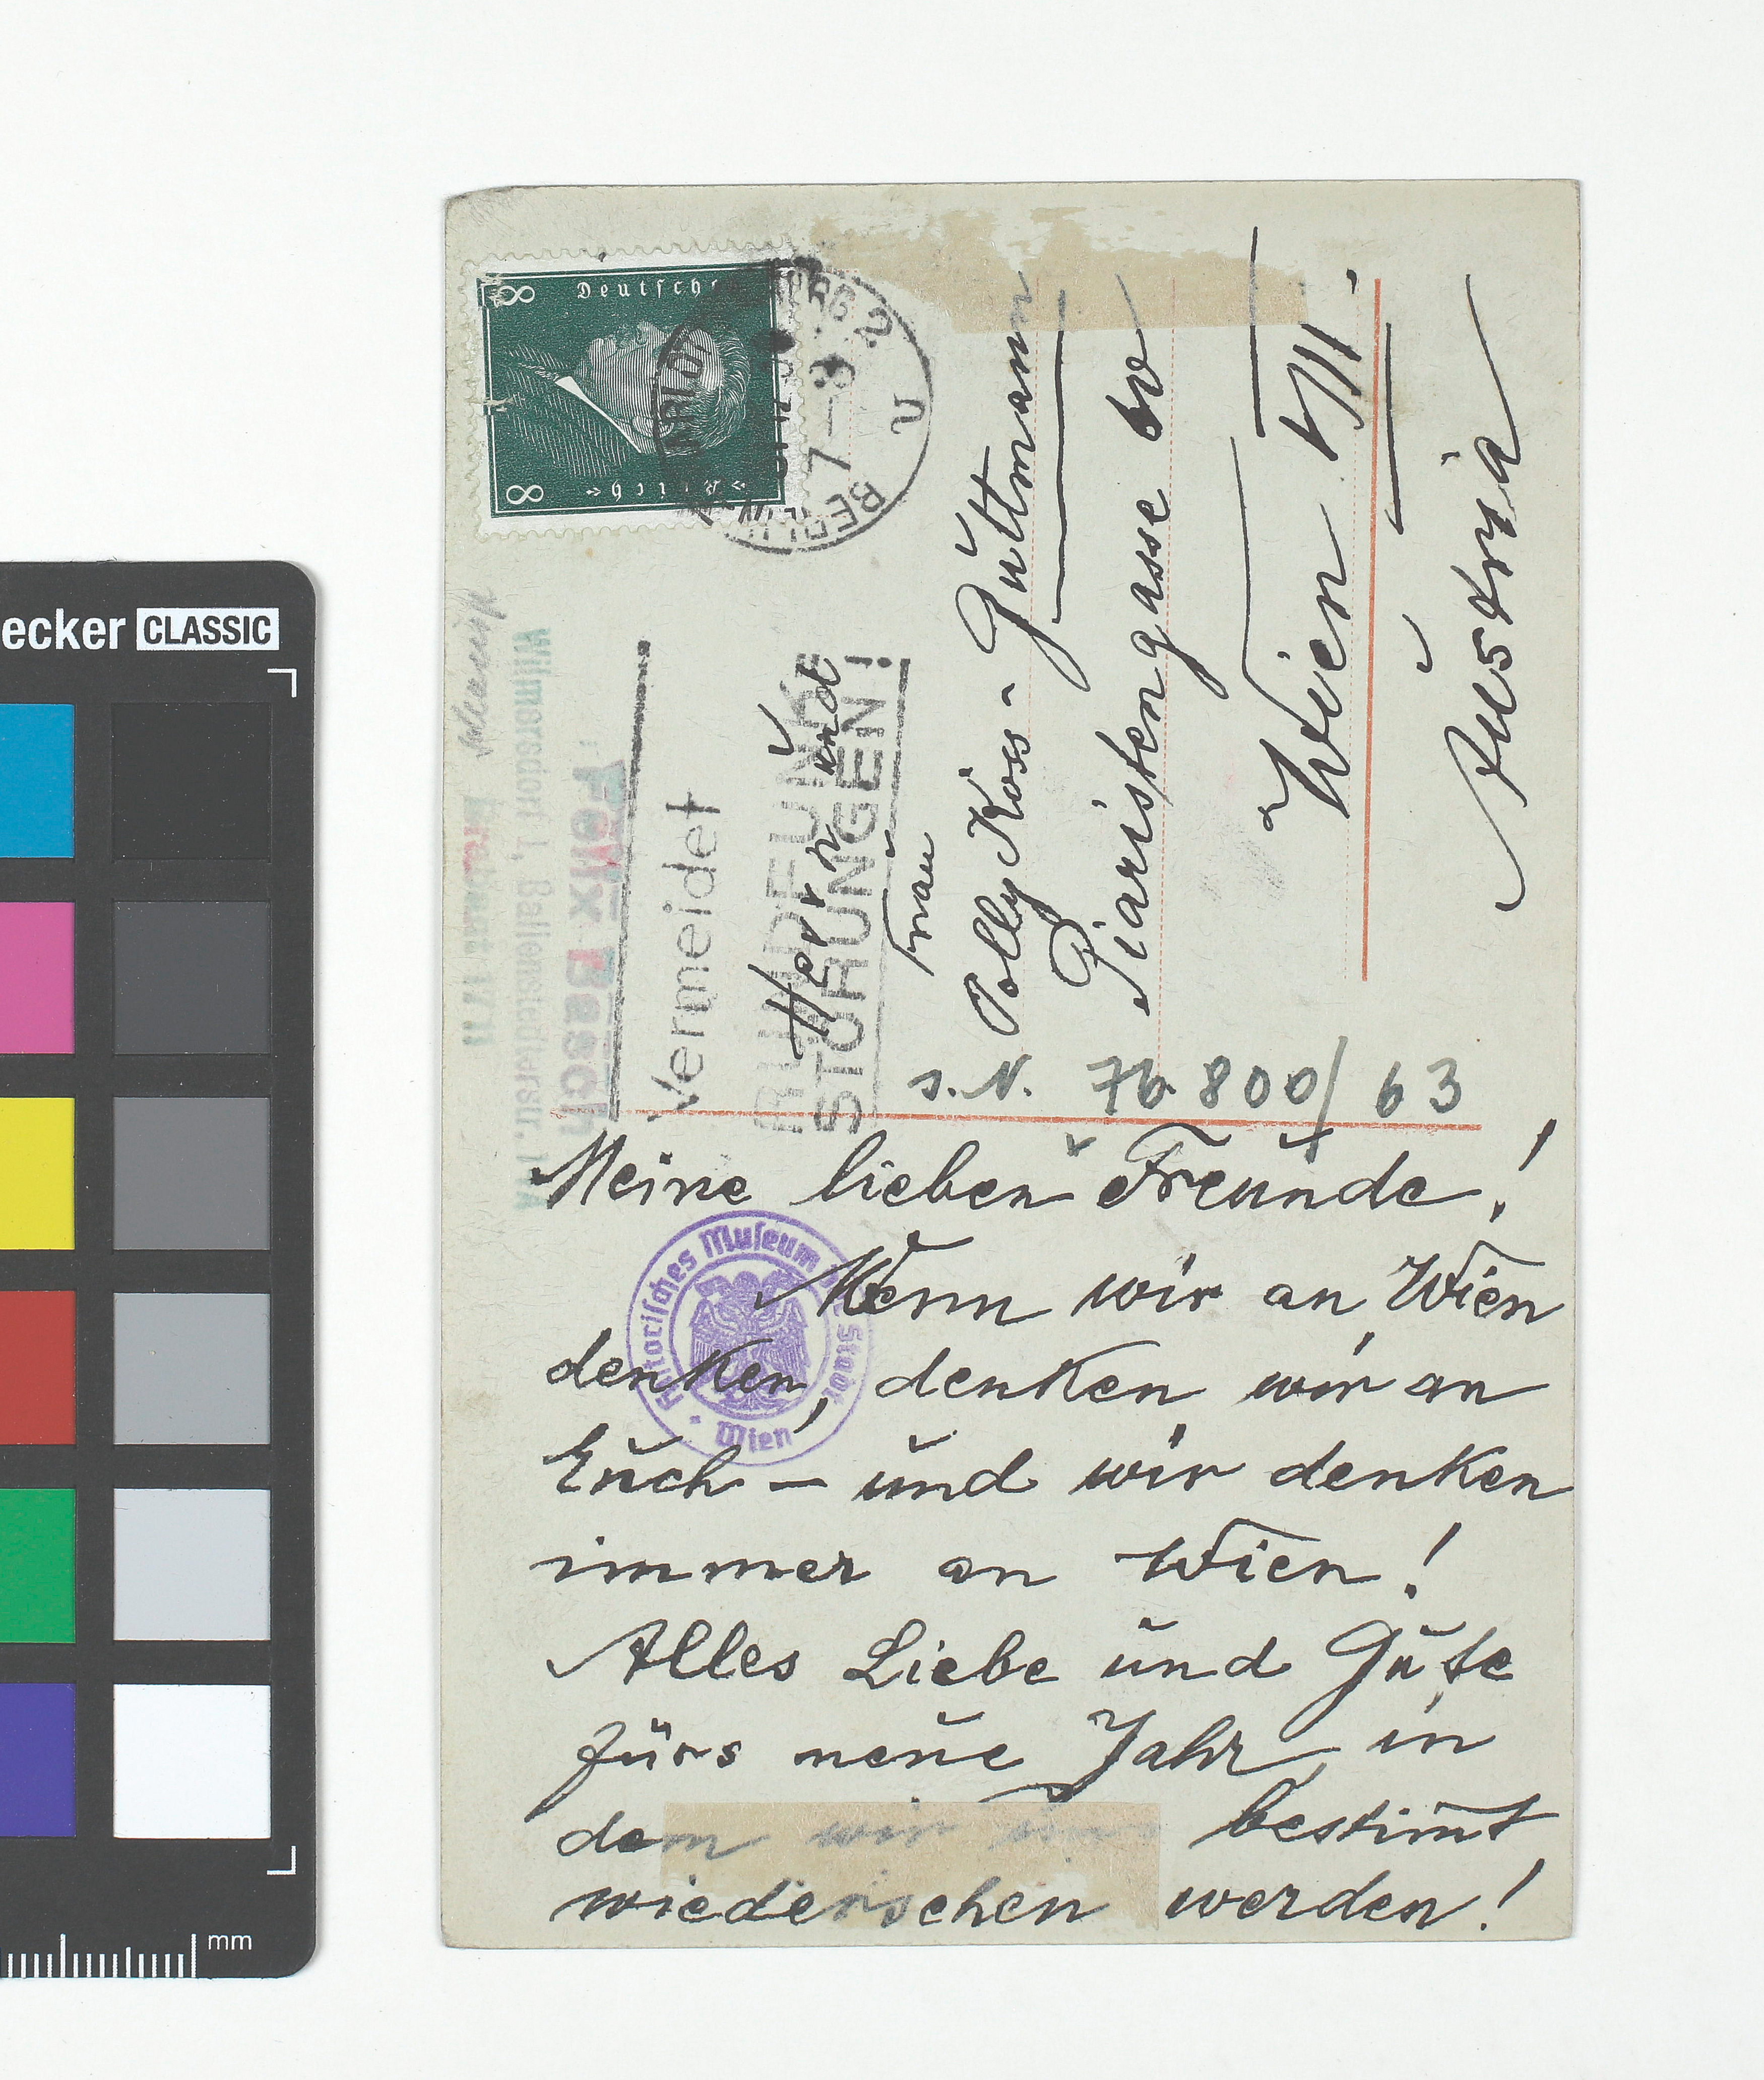 ecker CLASSIC
mm
8 Deutsches
Reich 8
BERLIN
7-8
U
Wilmersdorf 1, Ballenstedterstr.
Felix Basch
Vermeidet
RUNDFUNK
STÖRUNGEN!
Herrn und
Frau
Polly Koss-Guttmann
Piaristengasse
Wien VIII.
Austria
S.N. 76.800/63
Meine lieben Freunde!
Wenn wir an Wien
denken, denken wir an
Euch – und wir denken
immer an Wien!
Alles Liebe und Gute
fürs neue Jahr, in
dem wir uns bestimt
wiedersehen werden!
Historisches Museum der Stadt
Wien